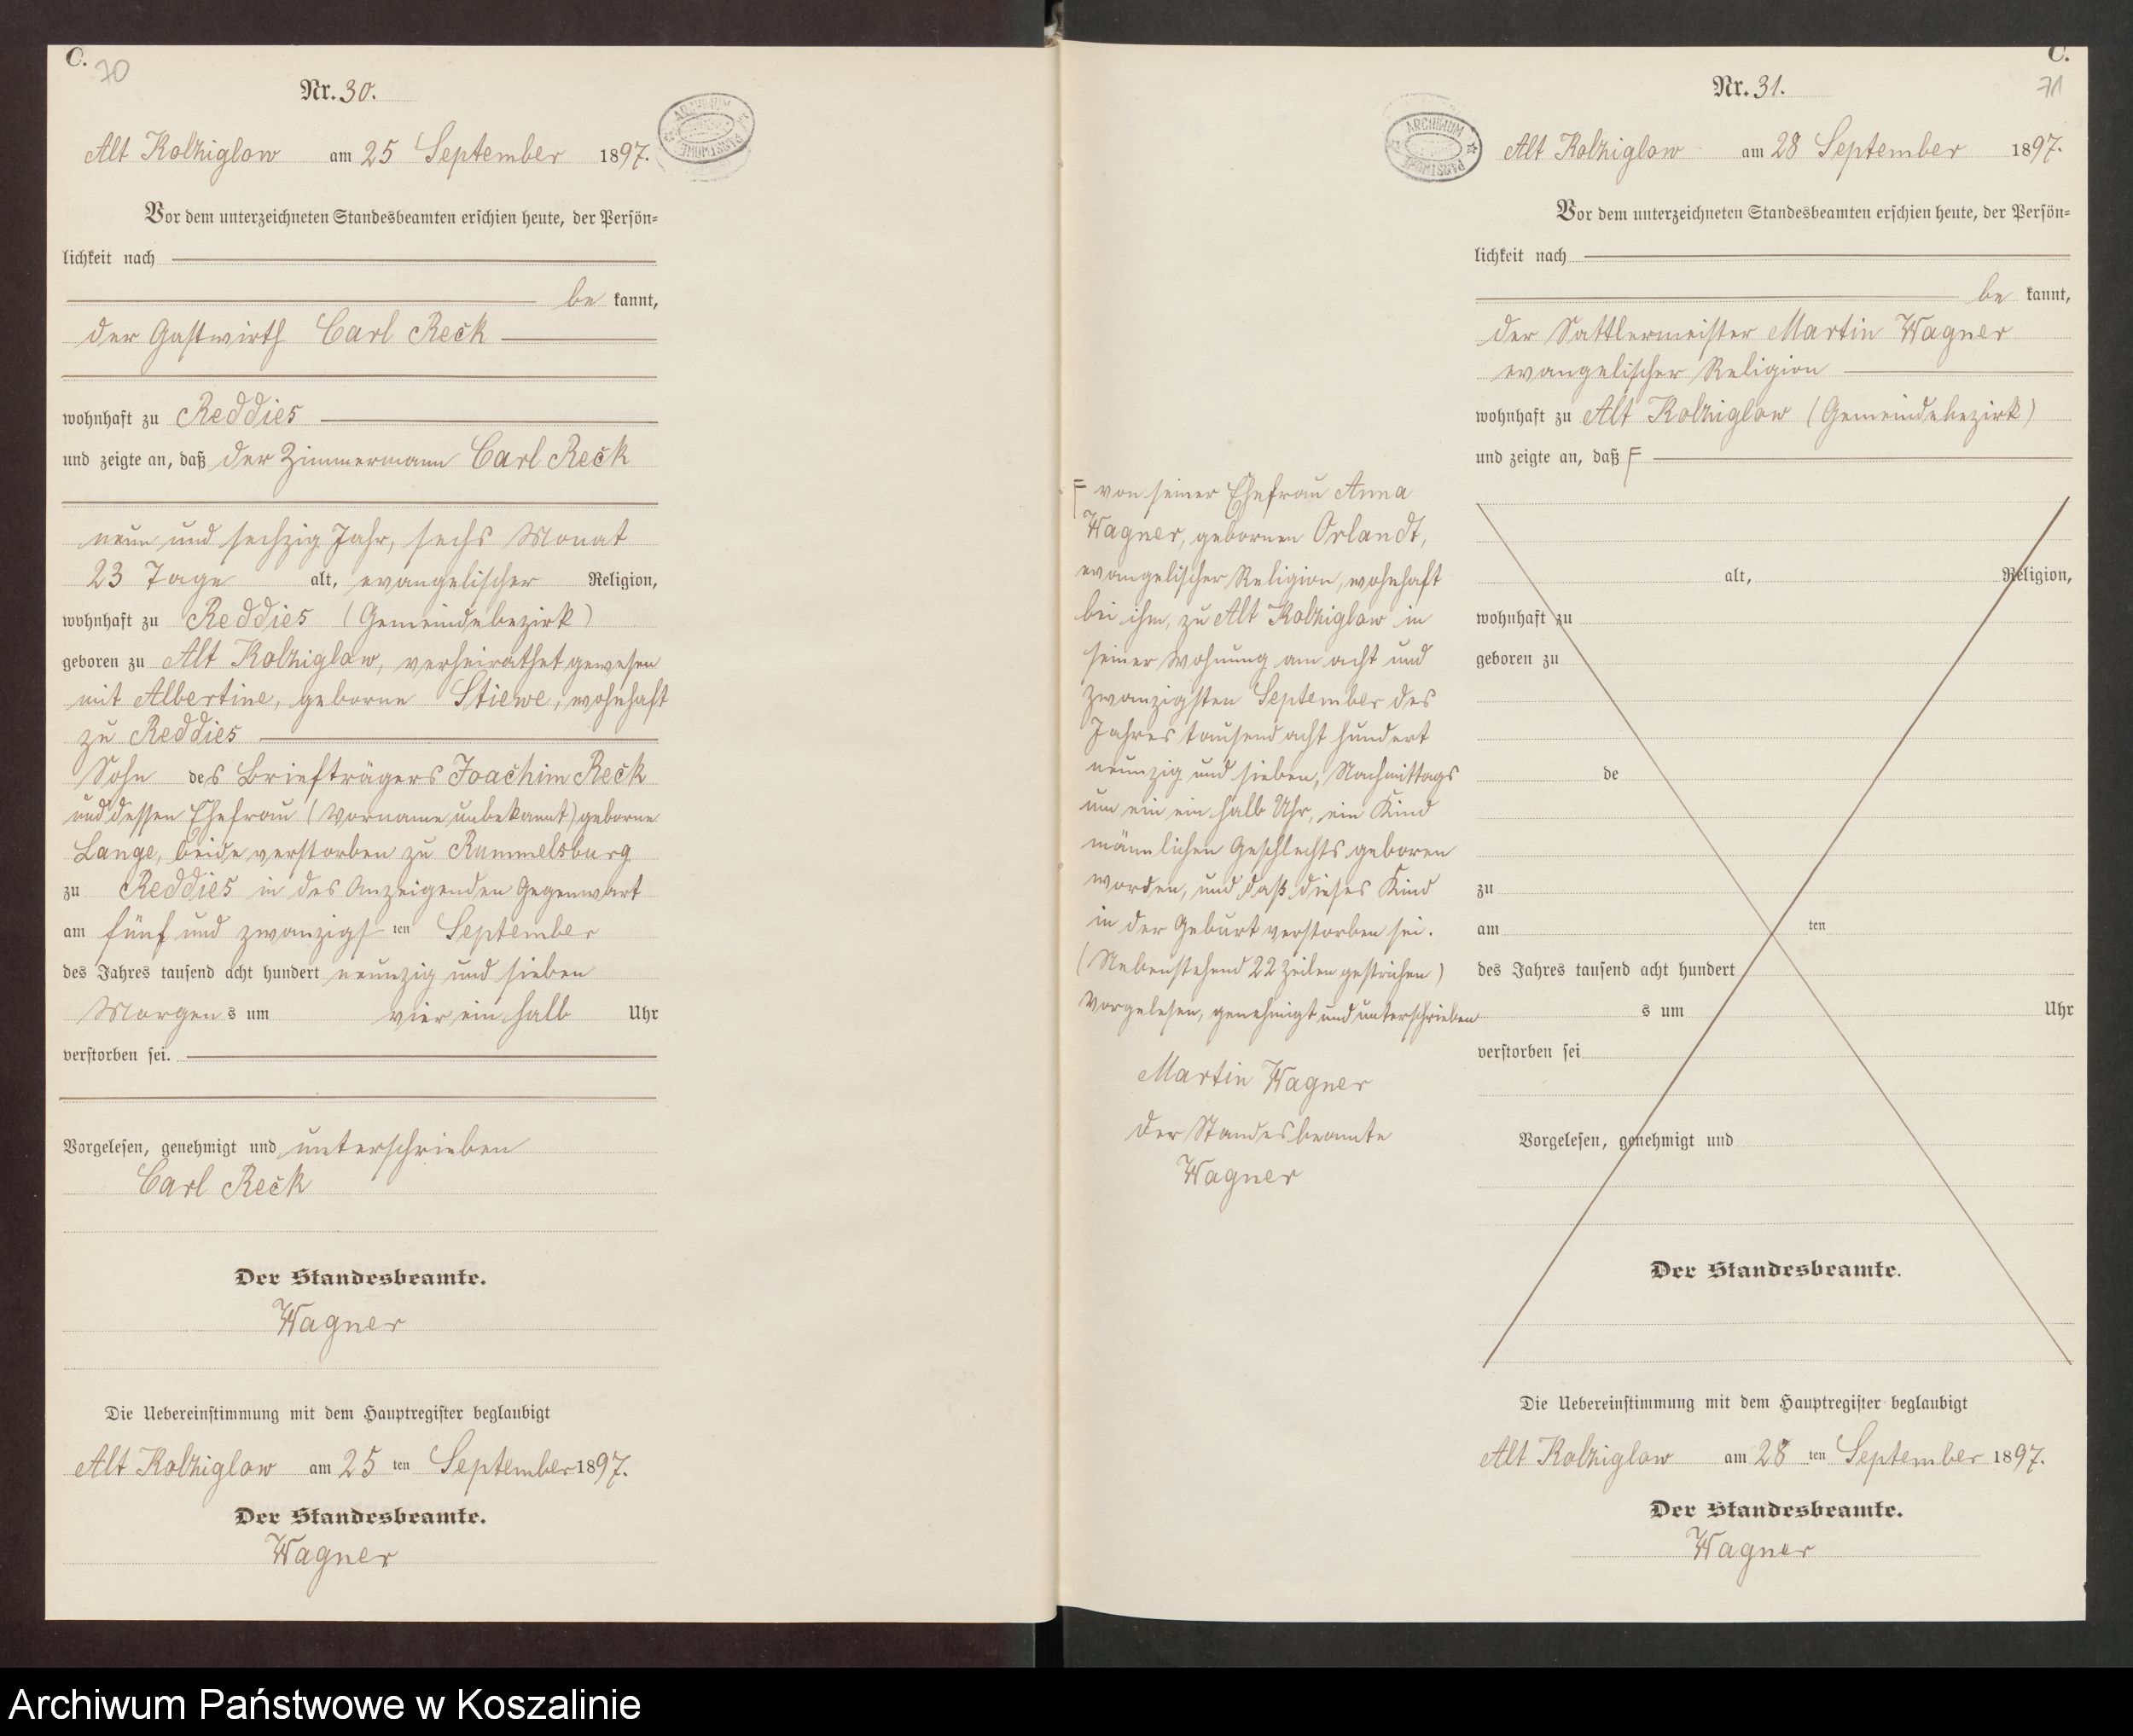 C.
70
Nr. 30.
Alt Kolziglow am 25 September 1897.
Vor dem unterzeichneten Standesbeamten erschien heute, der Persön-
lichkeit nach
be kannt,
der Gastwirth Carl Reck
wohnhaft zu Reddies
und zeigte an, daß der Zimmermann Carl Reck
neun und sechzig Jahr, sechs Monat
23 Tage alt, evangelischer Religion,
wohnhaft zu Reddies (Gemeindebezirk)
geboren zu Alt Kolziglow, verheirathet gewesen
mit Albertine, geborne Stiewe, wohnhaft
zu Reddies
Sohn des Briefträgers Joachim Reck
und dessen Ehefrau (Vorname unbekannt) geborne
Lange, beide verstorben zu Rummelsburg
zu Reddies in des Anzeigenden Gegenwart
am fünf und zwanzigsten September
des Jahres tausend acht hundert neunzig und sieben
Morgens um vier ein halb Uhr
verstorben sei.
Vorgelesen, genehmigt und unterschrieben
Carl Reck
Der Standesbeamte.
Wagner
Die Uebereinstimmung mit dem Hauptregister beglaubigt
Alt Kolziglow am 25 ten September 1897.
Der Standesbeamte.
Wagner
ARCHIWUM
C.
71
Nr. 31.
ARCHIWUM
Alt Kolziglow am 28 September 1897.
Vor dem unterzeichneten Standesbeamten erschien heute, der Persön-
lichkeit nach
be kannt,
der Sattlermeister Martin Wagner
evangelischer Religion
wohnhaft zu Alt Kolziglow (Gemeindebezirk)
und zeigte an, daß F
F von seiner Ehefrau Anna
Wagner, gebornen Orlandt,
evangelischer Religion, wohnhaft
bei ihm, zu Alt Kolziglow in
seiner Wohnung am acht und
zwanzigsten September des
Jahres tausend acht hundert
neunzig und sieben, Nachmittags
um ein ein halb Uhr, ein Kind
männlichen Geschlechts geboren
worden, und daß dieses Kind
in der Geburt verstorben sei.
(Nebenstehend 22 Zeilen gestrichen)
Vorgelesen, genehmigt und unterschrieben
Martin Wagner
Der Standesbeamte
Wagner
alt, Religion,
wohnhaft zu
geboren zu
de
zu
am ten
des Jahres tausend acht hundert
s um Uhr
verstorben sei
Vorgelesen, genehmigt und
Der Standesbeamte.
Die Uebereinstimmung mit dem Hauptregister beglaubigt
Alt Kolziglow am 28 ten September 1897.
Der Standesbeamte.
Wagner
Archiwum Państwowe w Koszalinie